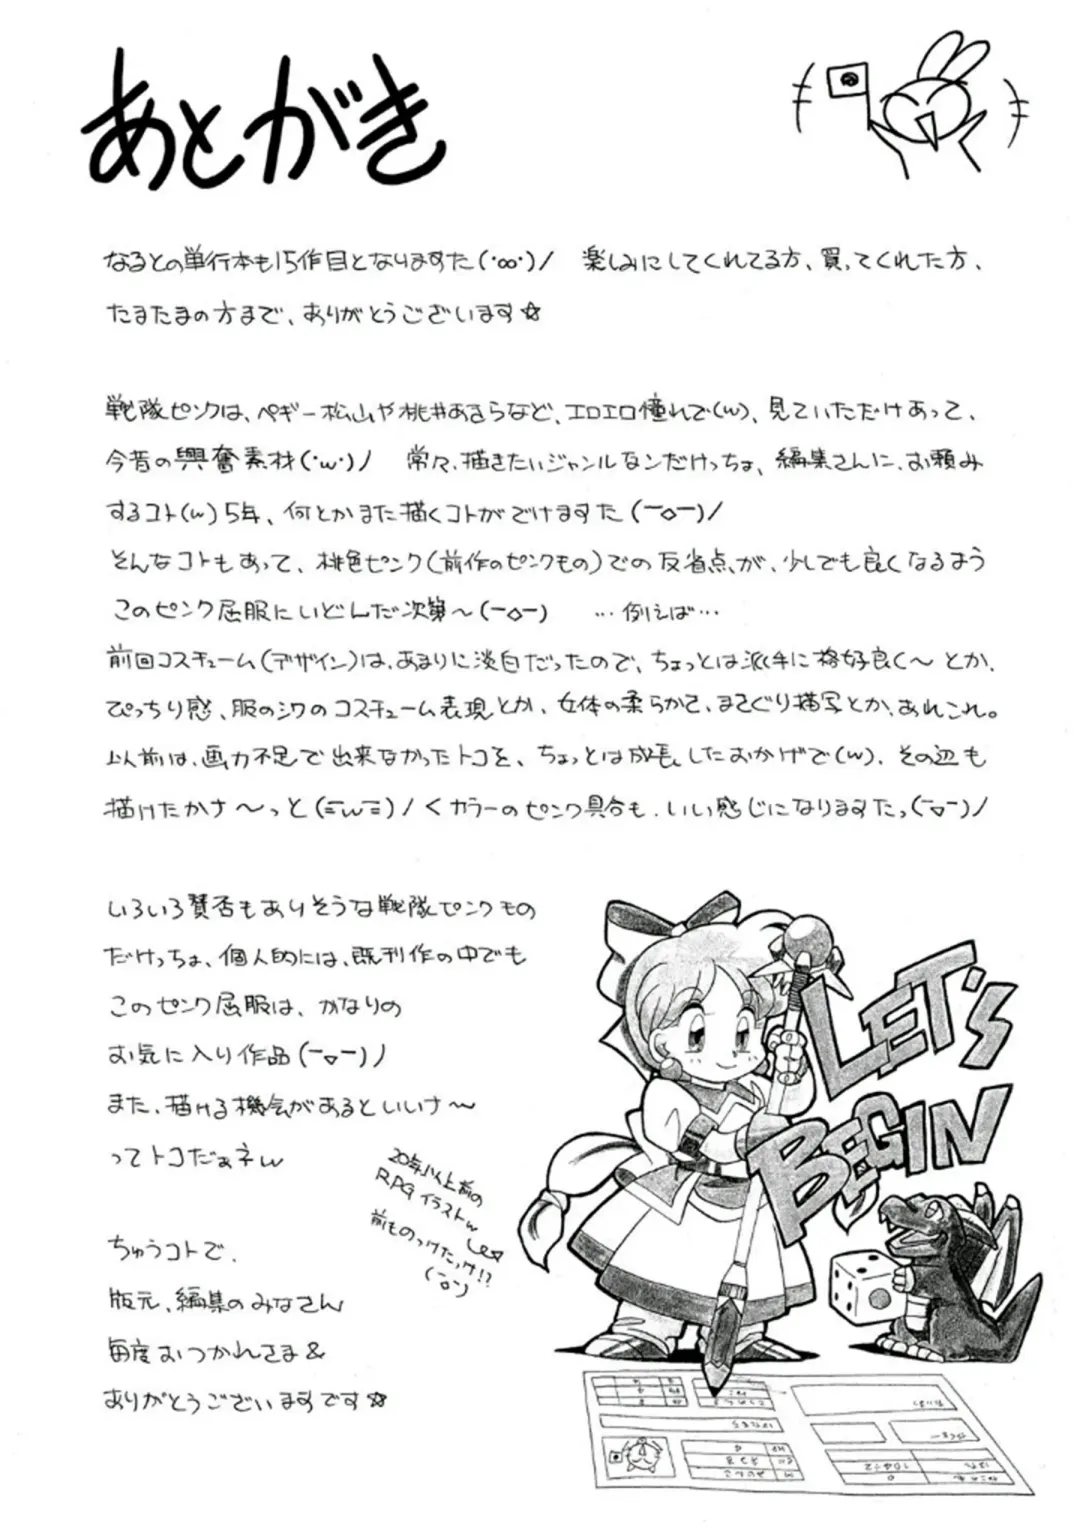 あとがき
なるとの単行本も15作目となりますた(・∞・)/ 楽しみにしてくれてる方、買ってくれた方、
たまたまの方まで、ありがとうございます☆
戦隊ピンクは、ペギー松山や桃井あきらなど、エロエロ憧れで(w)、見ていただけあって、
今昔の興奮素材(・w・)ノ 常々、描きたいジャンルなンだけっちょ、編集さんに、お頼み
するコト(w)5年、何とかまた描くコトがでけますた(ー◇ー)/
そんなコトもあって、桃色ピンク(前作のピンクもの)での反省点、が、少しでも良くなるよう
このピンク屈服にいどんだ次第〜(ー◇ー) …例えば…
前回コスチューム(デザイン)は、あまりに淡白だったので、ちょっとは派手に格好良く〜とか、
ぴっちり感、服のシワのコスチューム表現とか、女体の柔らかさ、まさぐり描写とか、あれこれ。
以前は、画力不足で出来なかったトコを、ちょっとは成長したおかげで(w)、その辺も
描けたかナ〜っと(=w=)/くカラーのピンク具合も、いい感じになりますたっ(ー▽ー)/
いろいろ賛否もありそうな戦隊ピンクもの
だけっちょ、個人的には、既刊作の中でも
このピンク屈服は、かなりの
お気に入り作品(ー▽ー)ノ
また、描ける機会があるといいナ〜
ってトコだぁネw
20年以上前の
RPGイラストw
前ものっけたっけ!?
(ーoー)
ちゅうコトで、
版元、編集のみなさん
毎度おつかれさま&
ありがとうございますです☆
LET'S
BEGIN